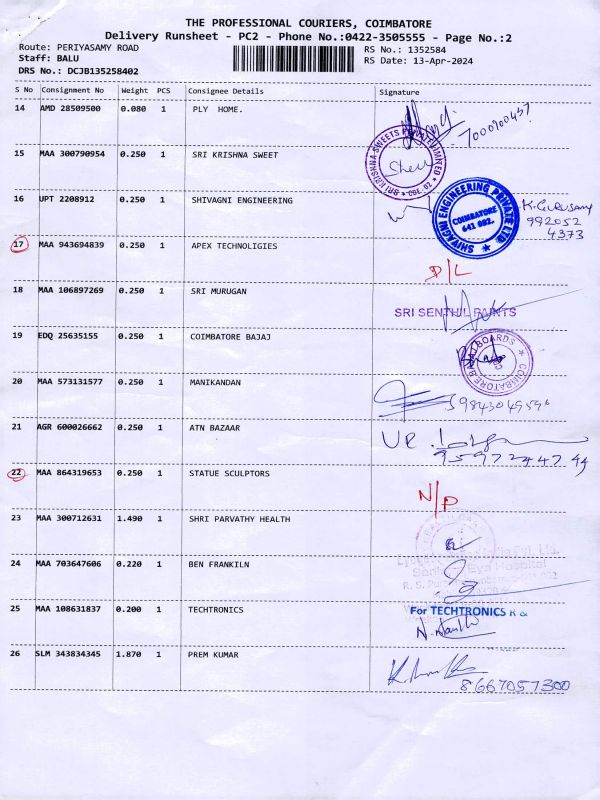 THE PROFESSIONAL COURIERS, COIMBATORE
Delivery Runsheet - PC2 - Phone No.:0422-3505555 - Page No.:2
Route: PERIYASAMY ROAD RS No.: 1352584
Staff: BALU RS Date: 13-Apr-2024
DRS No.: DCJB135258402
S No Consignment No Weight PCS Consignee Details Signature
14 AMD 28509500 0.080 1 PLY HOME.
15 MAA 300790954 0.250 1 SRI KRISHNA SWEET
SRI KRISHNA SWEETS PRIVATE LIMITED CBE.02
16 UPT 2208912 0.250 1 SHIVAGNI ENGINEERING
SHIVAGNI ENGINEERING PRIVATE LTD
COIMBATORE
641 002.
K. Gurusamy
992052
4373
17 MAA 943694839 0.250 1 APEX TECHNOLIGIES
D/L
18 MAA 106897269 0.250 1 SRI MURUGAN
SRI SENTHIL PAINTS
19 EDQ 25635155 0.250 1 COIMBATORE BAJAJ
COIMBATORE BAJAJ BOARDS
20 MAA 573131577 0.250 1 MANIKANDAN
21 AGR 600026662 0.250 1 ATN BAZAAR
22 MAA 864319653 0.250 1 STATUE SCULPTORS
N/P
23 MAA 300712631 1.490 1 SHRI PARVATHY HEALTH
Eye Hospital
24 MAA 703647606 0.220 1 BEN FRANKILN
25 MAA 108631837 0.200 1 TECHTRONICS
For TECHTRONICS
26 SLM 343834345 1.870 1 PREM KUMAR
8667057300